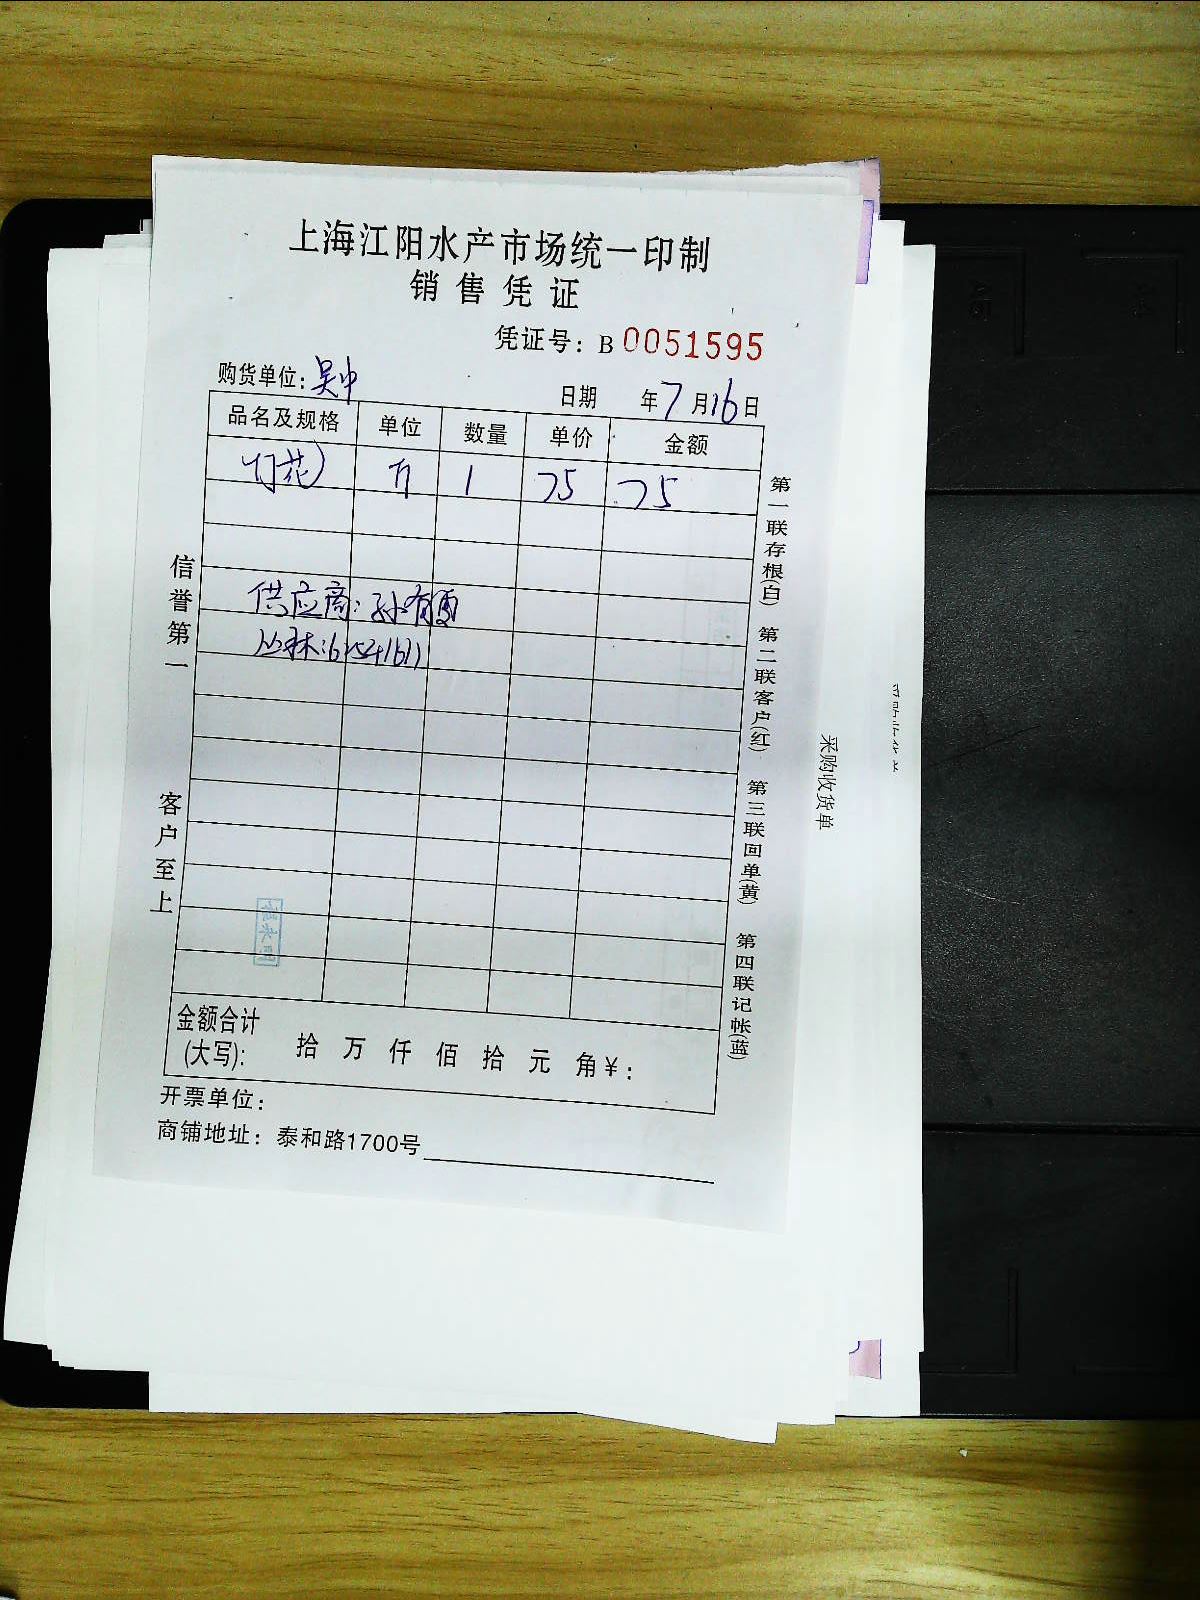 上海江阳水产市场统一印制
销售凭证
凭证号：B 0051595
购货单位：吴中
日期 年7月16日
品名及规格 单位 数量 单价 金额
灯花 1 75 75
供应商：孙
信誉第一
客户至上
第一联存根(白)
第二联客户(红)
第三联回单(黄)
第四联记帐(蓝)
金额合计
(大写)： 拾 万 仟 佰 拾 元 角 ¥：
开票单位：
商铺地址：泰和路1700号
采购收货单